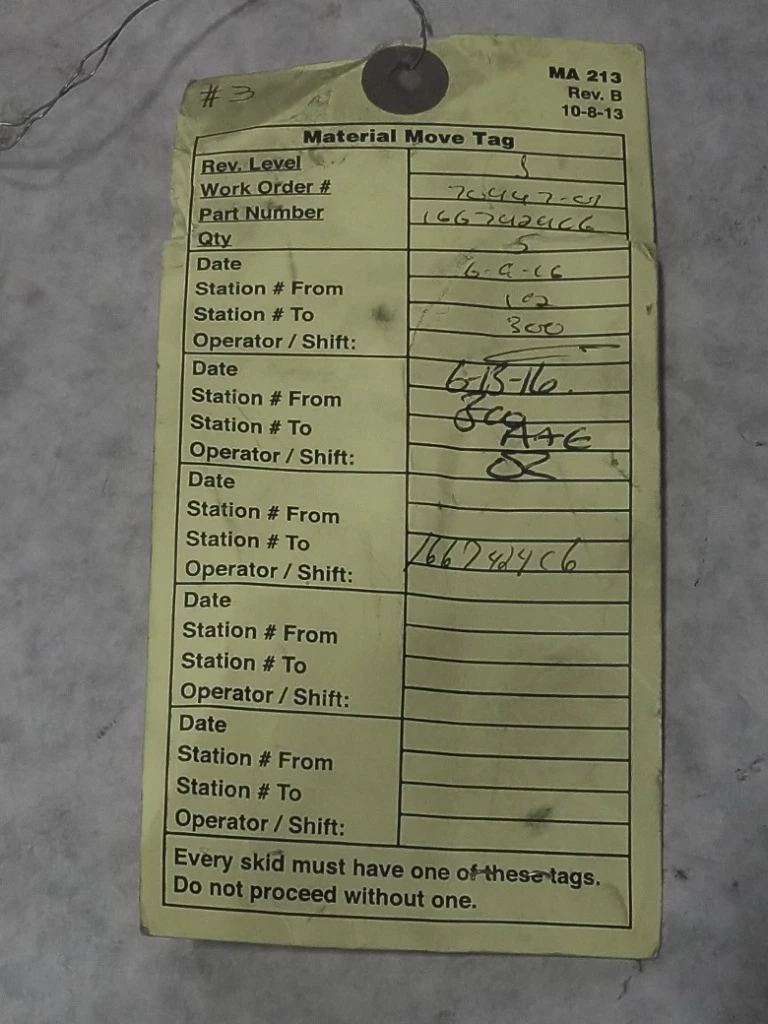 # 3
MA 213
Rev. B
10-8-13
Material Move Tag
Rev. Level
Work Order #
Part Number 166742466
Qty 5
Date 6-9-16
Station # From 102
Station # To 300
Operator / Shift:
Date 6-13-16.
Station # From 300
Station # To
Operator / Shift:
Date
Station # From
Station # To 1667424C6
Operator / Shift:
Date
Station # From
Station # To
Operator / Shift:
Date
Station # From
Station # To
Operator / Shift:
Every skid must have one of these tags.
Do not proceed without one.